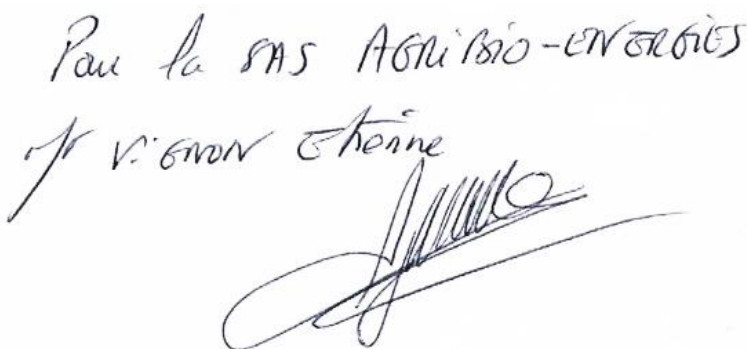 Pour la SAS AGRIBIO-ENERGIES
Mr VIGNON Etienne